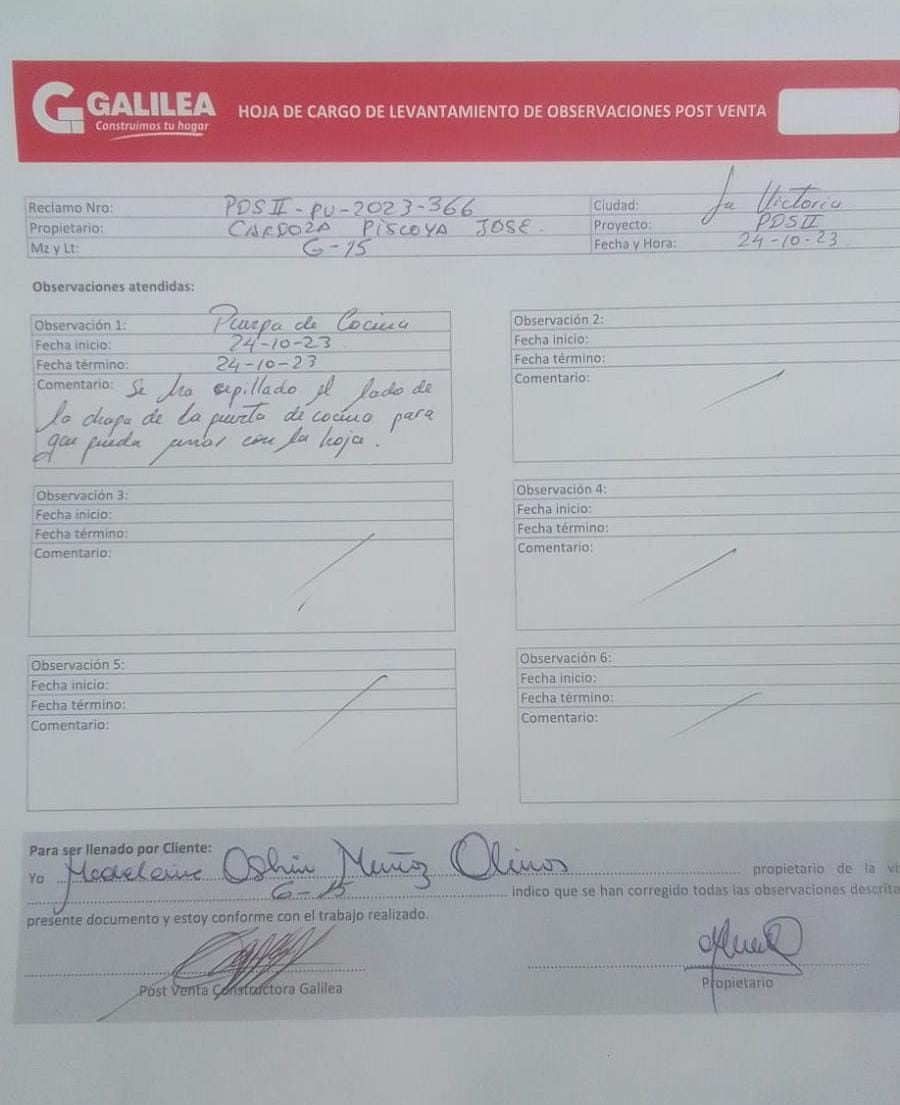 GALILEA
Construimos tu hogar
HOJA DE CARGO DE LEVANTAMIENTO DE OBSERVACIONES POST VENTA
Reclamo Nro: PDS II - PV - 2023 - 366
Ciudad: La Victoria
Propietario: CARDOZA PISCOYA JOSE.
Proyecto: PDS II
Mz y Lt: G - 15
Fecha y Hora: 24-10-23
Observaciones atendidas:
Observación 1: de Cocina
Fecha inicio: 24-10-23
Fecha término: 24-10-23
Comentario: Se ha cepillado el lado de
la chapa de la puerta de cocina para
que pueda con la hoja.
Observación 2:
Fecha inicio:
Fecha término:
Comentario:
Observación 3:
Fecha inicio:
Fecha término:
Comentario:
Observación 4:
Fecha inicio:
Fecha término:
Comentario:
Observación 5:
Fecha inicio:
Fecha término:
Comentario:
Observación 6:
Fecha inicio:
Fecha término:
Comentario:
Para ser llenado por Cliente:
Yo Madeleine Oshin Muñoz Olinos propietario de la vi
G-15 indico que se han corregido todas las observaciones descrita
presente documento y estoy conforme con el trabajo realizado.
Post Venta Constructora Galilea
Propietario